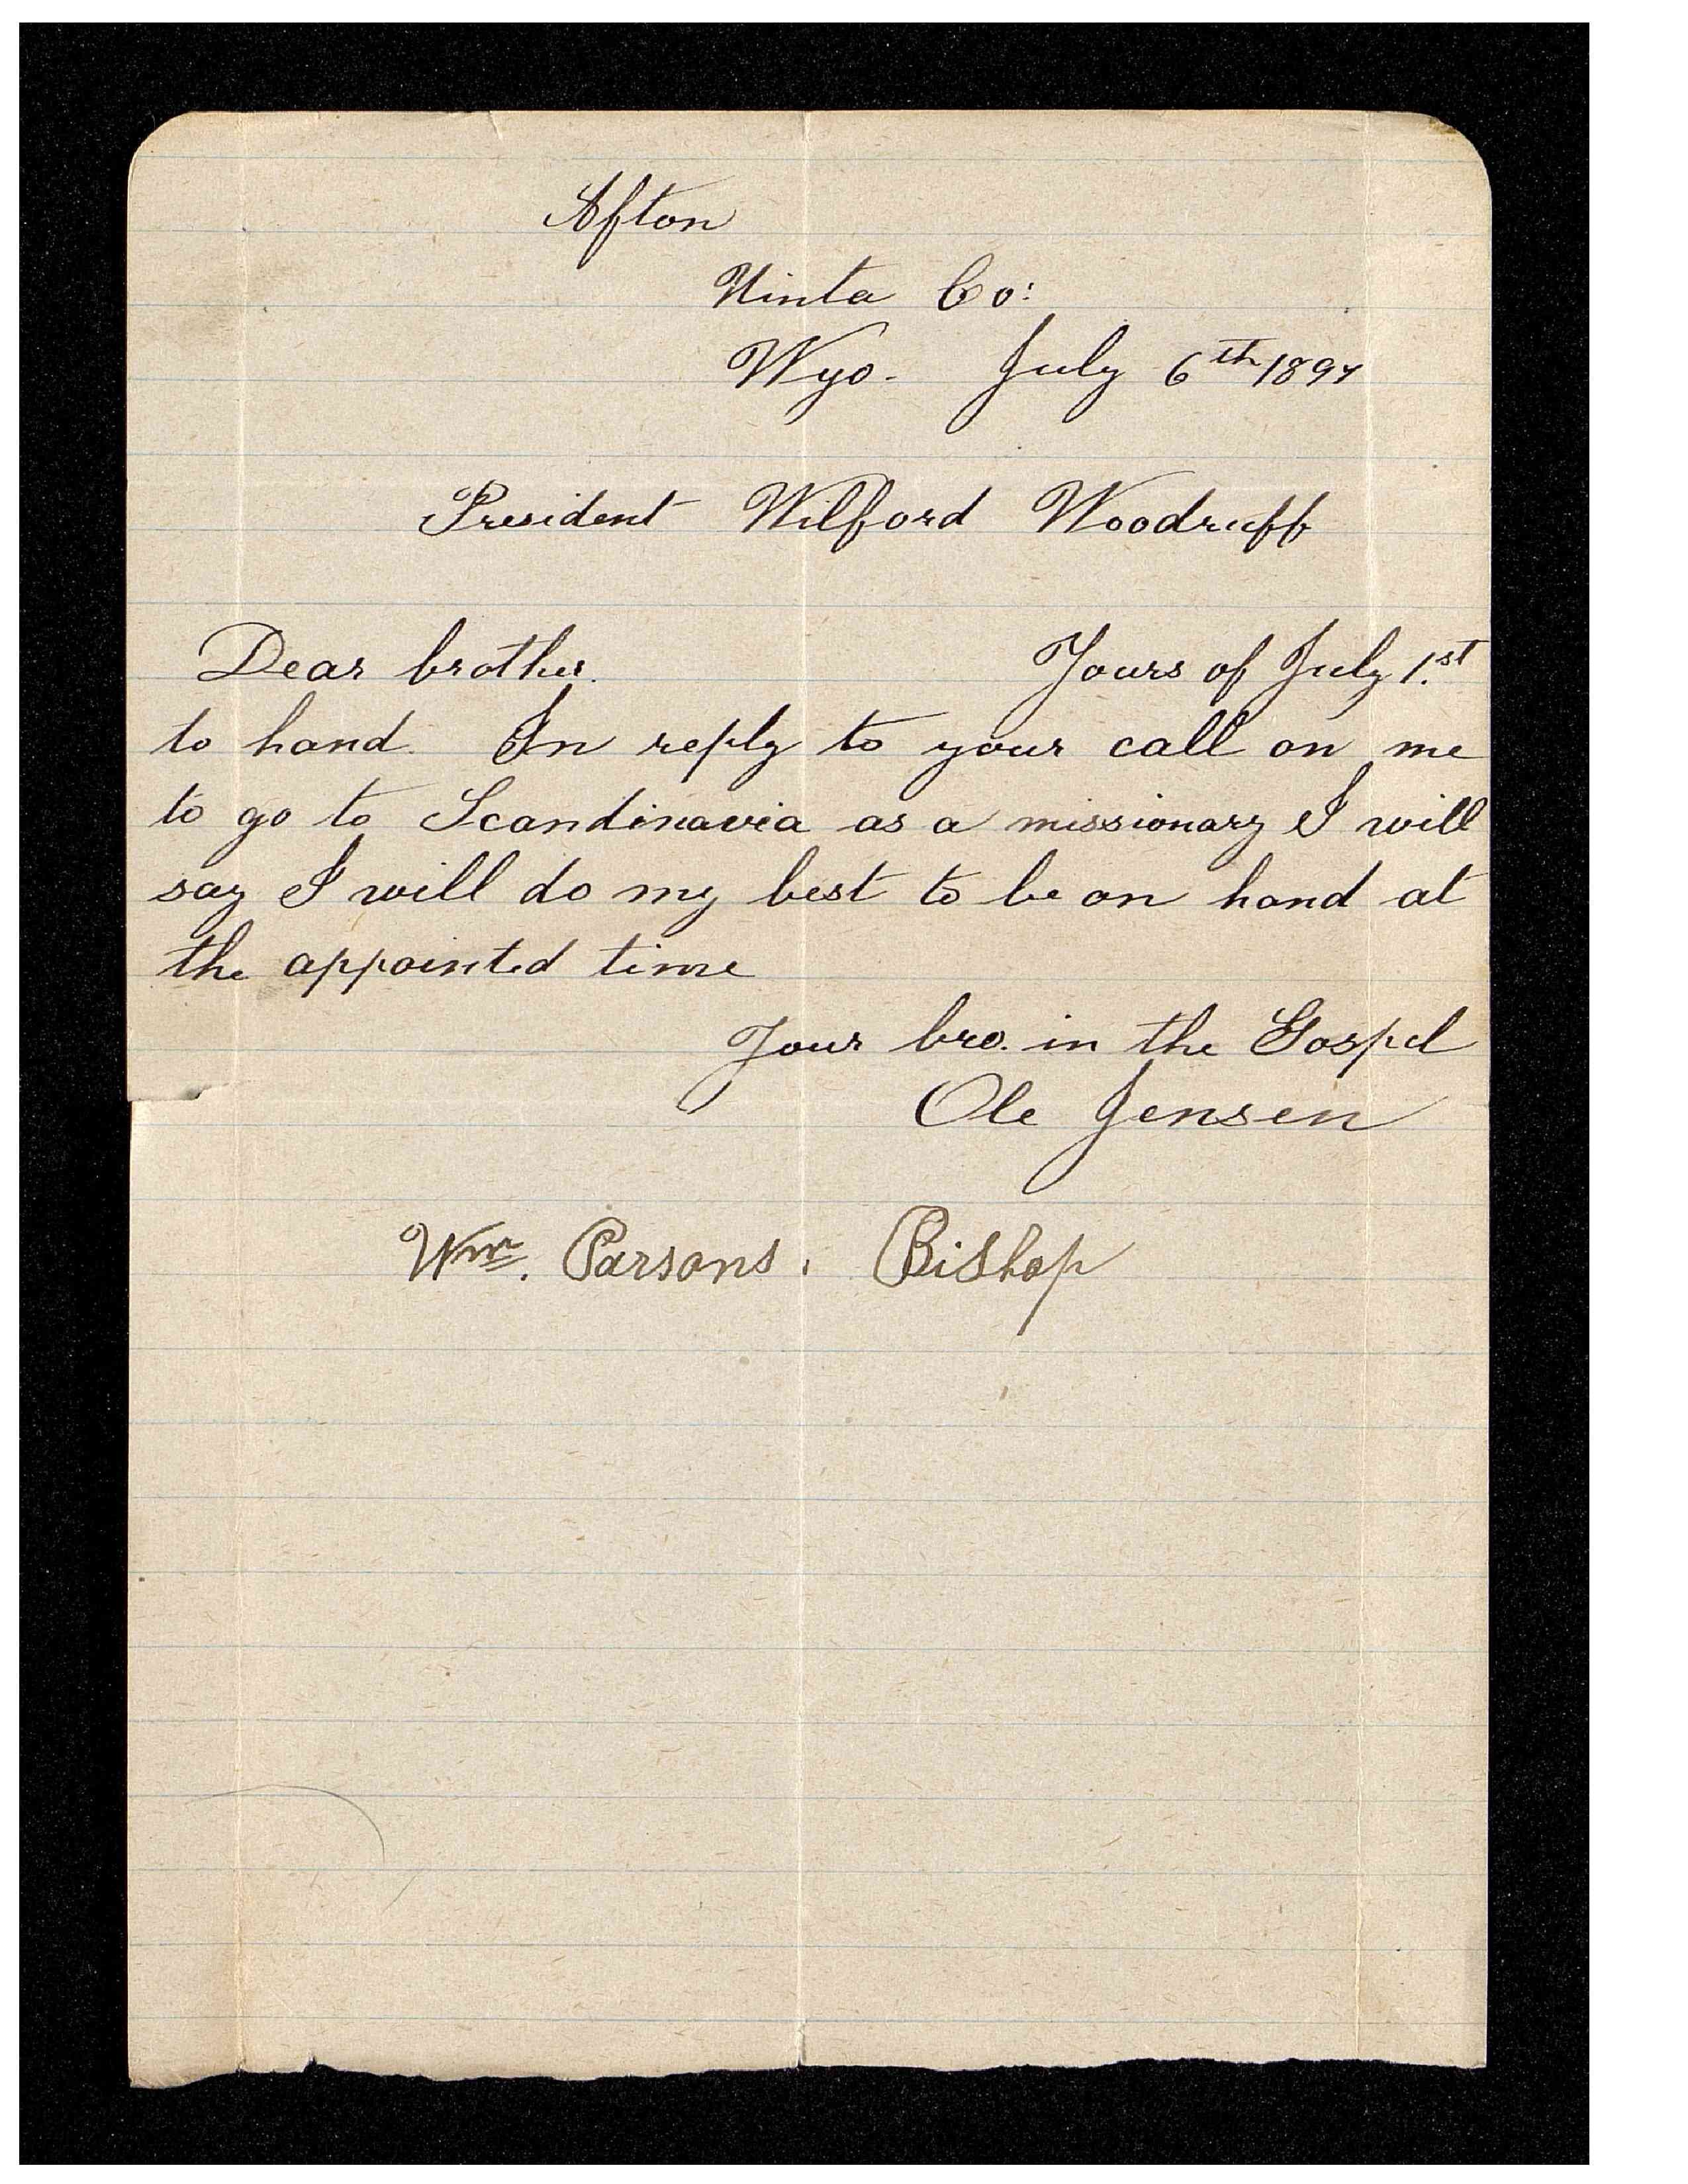 Afton
Uinta Co:
Wyo. July 6th 1897
President Wilford Woodruff
Dear brother. Yours of July 1.st
to hand. In reply to your call on me
to go to Scandinavia as a missionary I will
say I will do my best to be on hand at
the appointed time
Your bro. in the Gospel
Ole Jensen
Wm. Parsons. Bishop